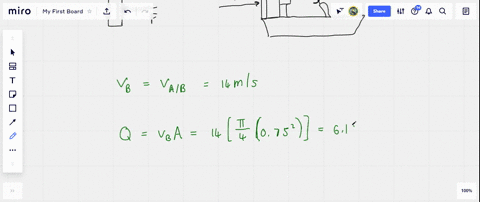 miro My First Board Share
V_B = V_A/B = 14 m/s
Q = V_B A = 14 [π/4 (0.75²)] = 6.1
100%